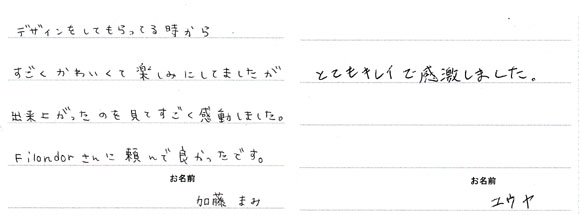 デザインをしてもらってる時から
すごくかわいくて楽しみにしてましたが
出来上がったのを見てすごく感動しました。
Filondorさんに頼んで良かったです。
お名前
加藤 まみ
とてもキレイで感激しました。
お名前
ユウヤ